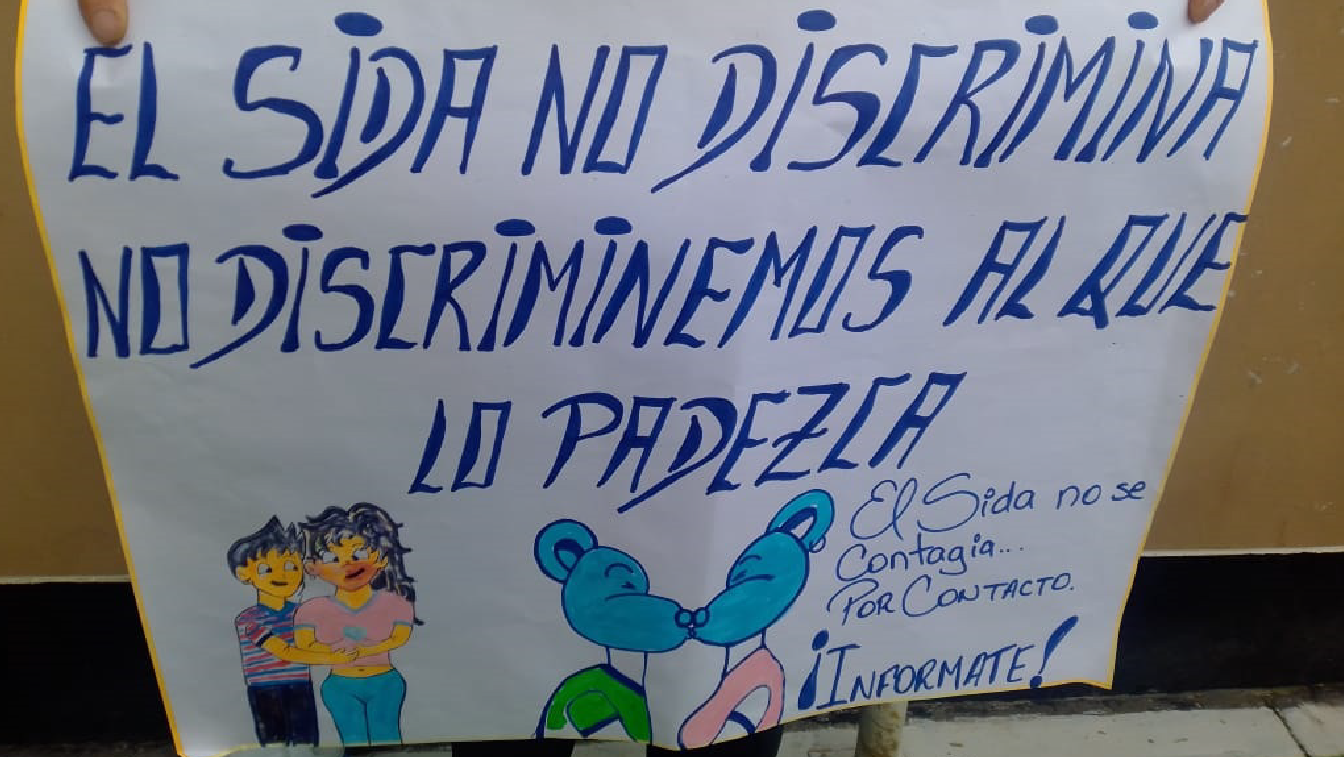 EL SiDA NO DiSCRiMiNA
NO DiSCRiMiNEMOS AL QUE
LO PADEZCA
El Sida no se
Contagia...
POR CONTACTO.
¡INFORMATE!